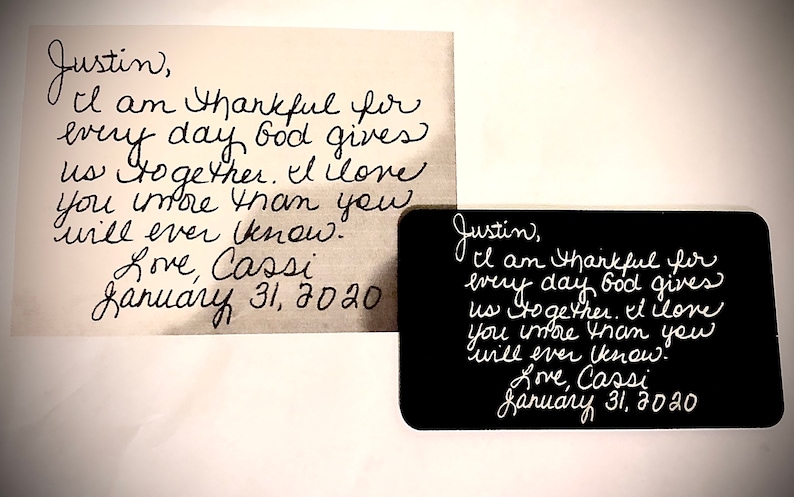 Justin,
I am thankful for
every day God gives
us together. I love
you more than you
will ever know.
Love, Cassi
January 31, 2020
Justin,
I am thankful for
every day God gives
us together. I love
you more than you
will ever know.
Love, Cassi
January 31, 2020